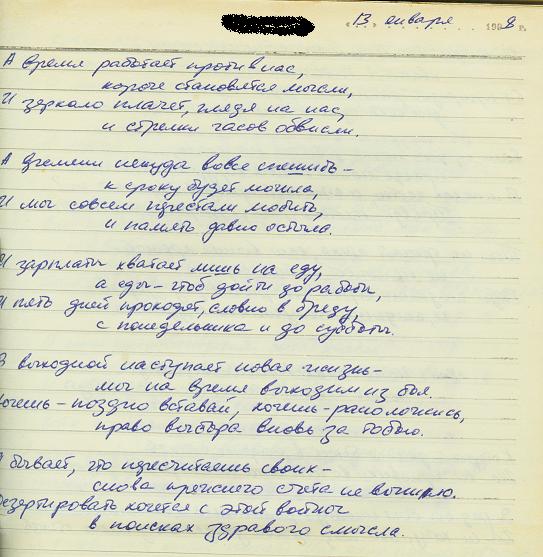 13 января 1998 г.
А время работает против нас,
короче становятся мысли,
И зеркало плачет, глядя на нас,
и стрелки часов обвисли.
А времени некуда вовсе спешить -
к сроку будет могила,
И мы совсем перестали любить,
и память давно остыла.
И зарплаты хватает лишь на еду,
а еды - чтоб дойти до работы,
И пять дней проходят, словно в бреду,
с понедельника и до субботы.
В выходной наступает новая жизнь -
мы на время выходим из боя.
Хочешь - поздно вставай, хочешь - рано ложись,
право выбора вновь за тобою.
А бывает, что пересчитаешь своих -
снова прежнего счета не вышло.
Дезертировать хочется с этой войны
в поисках здравого смысла.